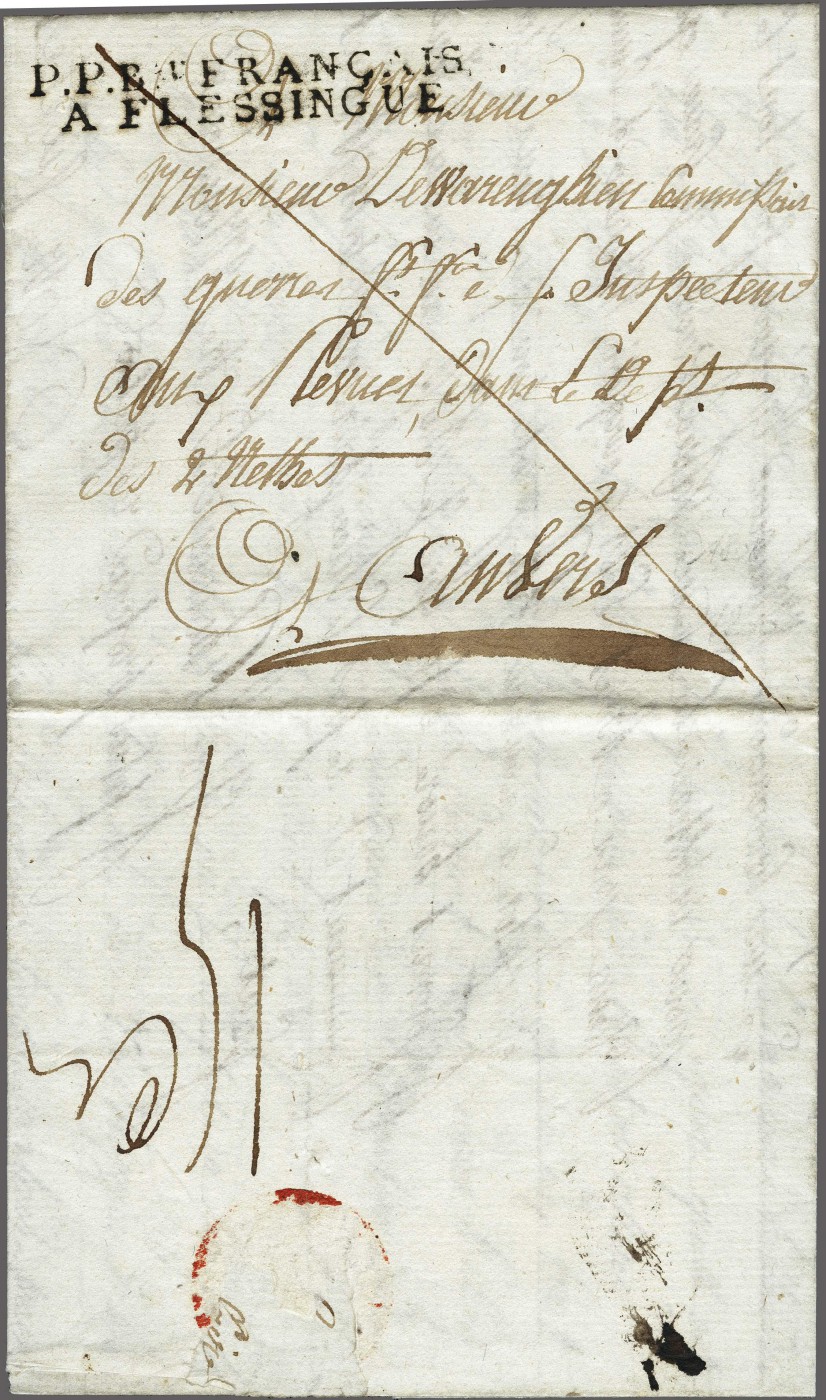 P.P. Bau FRANÇAIS
A FLESSINGUE
A Monsieur
Monsieur Dewarenghien Commissaire
des guerres Inspecteur
aux Revues, dans Le Dept.
des 2 Nethes
A Anvers